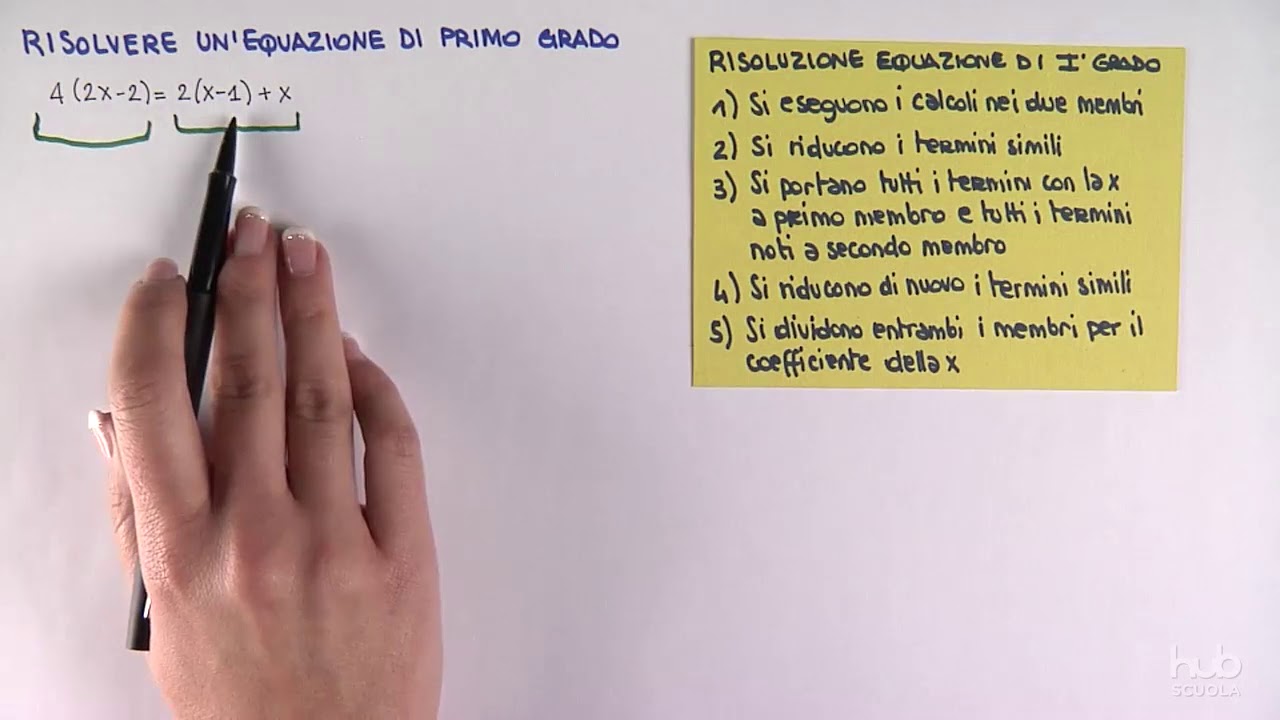 RISOLVERE UN'EQUAZIONE DI PRIMO GRADO
4(2x-2)= 2(x-1)+x
RISOLUZIONE EQUAZIONE DI I° GRADO
1) Si eseguono i calcoli nei due membri
2) Si riducono i termini simili
3) Si portano tutti i termini con la x
a primo membro e tutti i termini
noti a secondo membro
4) Si riducono di nuovo i termini simili
5) Si dividono entrambi i membri per il
coefficiente della x
hub
SCUOLA